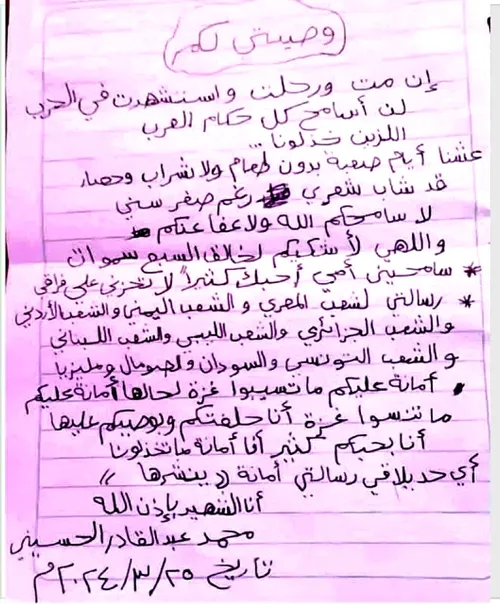 وصيتي لكم
إن مت ورحلت واستشهدت في الحرب
لن أسامح كل حكام العرب
اللذين خذلونا...
عشنا أيام صعبة بدون طعام ولا شراب وحصار
قد شاب شعري رغم صغر سني
لا سامحكم الله ولا عفا عنكم
واللهي لأشكيكم لخالق السبع سموات
* سامحيني أمي أحبك كثيراً لا تحزني على فراقي
* رسالتي لشعب المصري والشعب اليمني والشعب الأردني
والشعب الجزائري والشعب الليبي والشعب اللبناني
والشعب التونسي والسودان والصومال ومليزيا
• أمانة عليكم ما تسيبوا غزة لحالها أمانة عليكم
ما تنسوا غزة أنا حلفتكم وبوصيكم عليها
أنا بحبكم كثير أنا أمانة ما تخذلونا
أي حد يلاقي رسالتي أمانة (( ينشرها ))
أنا الشهيد بإذن الله
محمد عبد القادر الحسيني
تاريخ ٢٠٢٤/٣/٢٥م